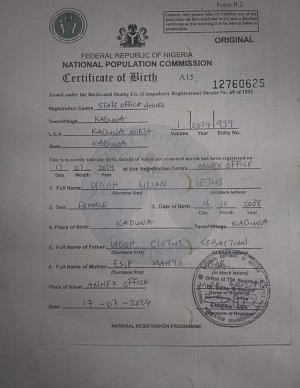 Form B.2
ORIGINAL
FEDERAL REPUBLIC OF NIGERIA
NATIONAL POPULATION COMMISSION
Certificate of Birth A15 12760625
Issued under the Births and Deaths Etc. (Compulsory Registration) Decree No. 69 of 1992
Registration Centre STATE OFFICE ANNEX
Town/Village KADUNA
L.G.A KADUNA NORTH 1 2024 939
Volume Year Entry No.
State KADUNA
This is to certify that the birth, details of which are recorded herein has been registered on
17 07 2024 at this Registration Centre ANNEX OFFICE
Day, Month Year
1. Full Name UDOH LILIAN CLETUS
(Surname first) (in block letters)
2. Sex: FEMALE 3. Date of Birth: 16 10
Day Month Year
4. Place of Birth: KADUNA Town/Village KADUNA
5. Full Name of Father: UDOH CLETUS SEBASTIAN
(Surname first) (in block letters)
6. Full Name of Mother: MANYO
(Surname first) (in block letters)
Place of Issue: ANNEX OFFICE
Name of Registrar
Date: 17-07-2024
Signature of Registrar
NATIONAL REGISTRATION PROGRAMME